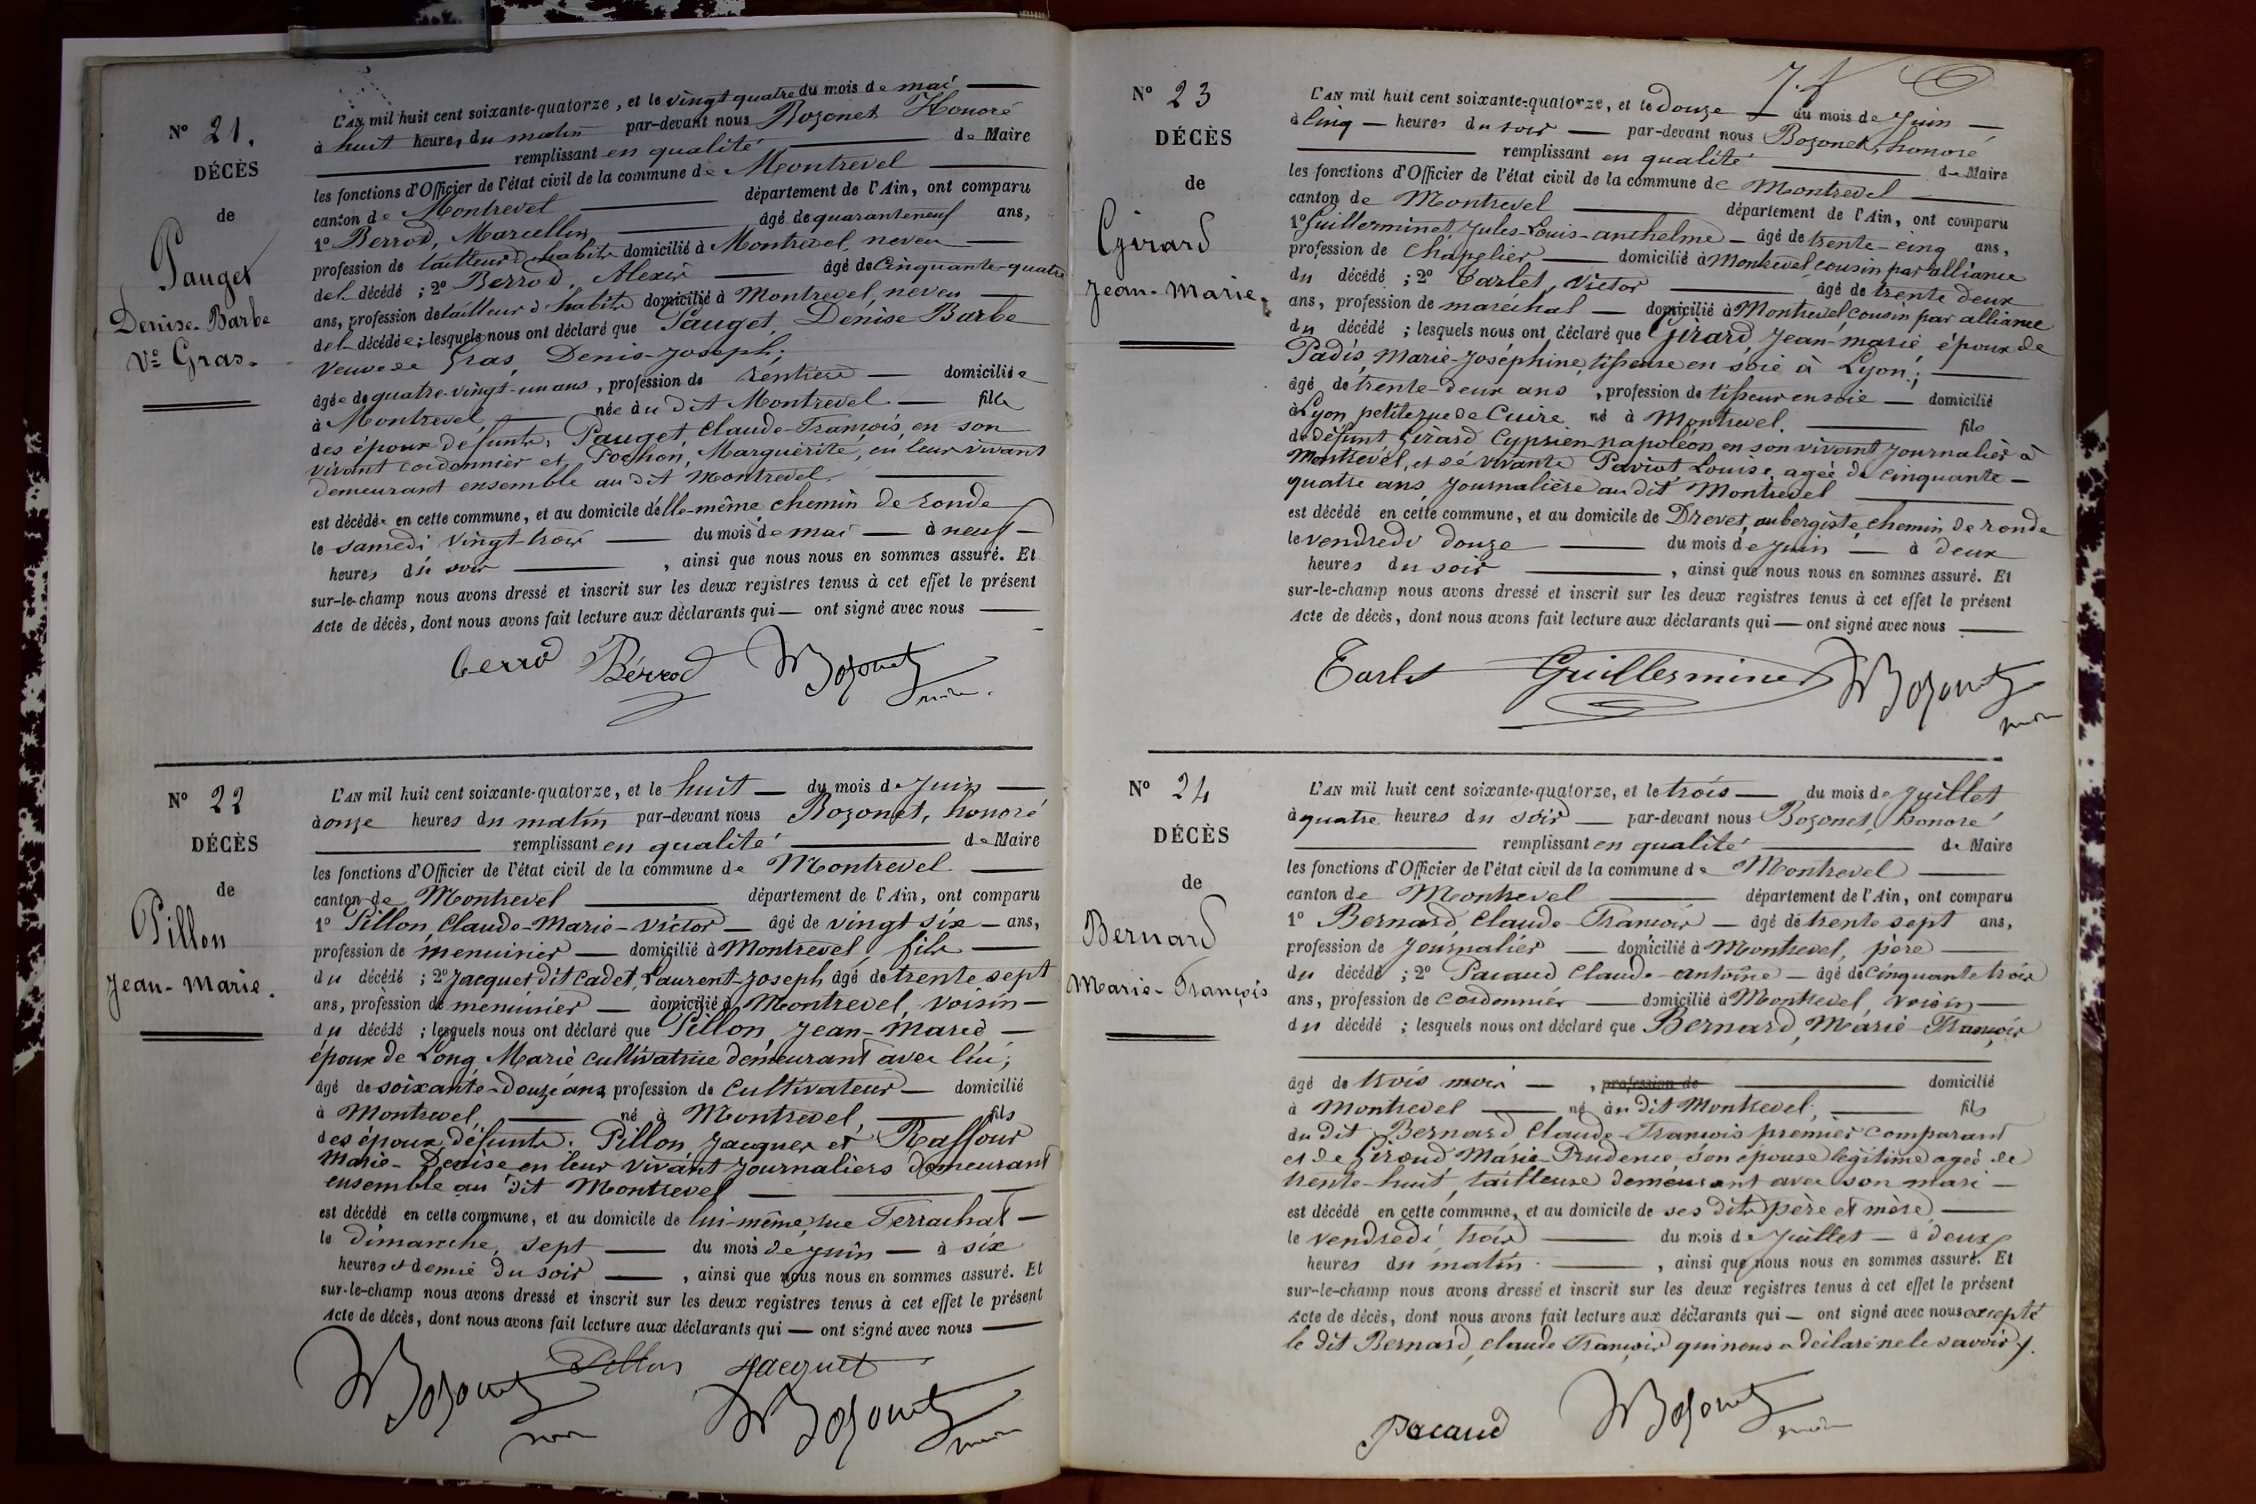 N° 21.
DÉCÈS
de
Pauget
Denise-Barbe
Vve Gras.
L'AN mil huit cent soixante-quatorze, et le vingt quatre du mois de mai
à huit heures du matin par-devant nous Bozonet Honoré
remplissant en qualité de Maire
les fonctions d'Officier de l'état civil de la commune de Montrevel
canton de Montrevel département de l'Ain, ont comparu
1° Berrod, Marcellin âgé de quaranteneuf ans,
profession de tailleur d'habits domicilié à Montrevel, neveu
de la décédée ; 2° Berrod, Alexis âgé de Cinquante-quatre
ans, profession de tailleur d'habits domicilié à Montrevel, neveu
de la décédée ; lesquels nous ont déclaré que Pauget, Denise Barbe
veuve de Gras, Denis-Joseph,
âgée de quatre-vingt-un ans, profession de rentière domiciliée
à Montrevel née au dit Montrevel fille
des époux défunts, Pauget, Claude-François, en son
vivant cordonnier et Pochon, Marguérite, en leur vivant
demeurant ensemble au dit Montrevel
est décédée en cette commune, et au domicile d'elle-même, chemin de ronde
le samedi vingt-trois du mois de mai à neuf
heures du soir, ainsi que nous nous en sommes assuré. Et
sur-le-champ nous avons dressé et inscrit sur les deux registres tenus à cet effet le présent
Acte de décès, dont nous avons fait lecture aux déclarants qui ont signé avec nous
berrod Bérrod Bozonet
maire.
N° 22
DÉCÈS
de
Pillon
Jean-Marie.
L'AN mil huit cent soixante-quatorze, et le huit du mois de Juin
à onze heures du matin par-devant nous Bozonet, honoré
remplissant en qualité de Maire
les fonctions d'Officier de l'état civil de la commune de Montrevel
canton de Montrevel département de l'Ain, ont comparu
1° Pillon, Claude-Marie-Victor âgé de vingt six ans,
profession de menuisier domicilié à Montrevel, fils
du décédé ; 2° Jacquet dit Cadet, Laurent-Joseph âgé de trente sept
ans, profession de menuisier domicilié à Montrevel, voisin
du décédé ; lesquels nous ont déclaré que Pillon, Jean-Marie
époux de Long Marie cultivatrice demeurant avec lui,
âgé de soixante-douze ans, profession de cultivateur domicilié
à Montrevel, né à Montrevel, fils
des époux défunts. Pillon Jacques et Raffour
Marie-Denise en leur vivant journaliers demeurant
ensemble au dit Montrevel
est décédé en cette commune, et au domicile de lui-même, rue Ferrachat
le dimanche, sept du mois de juin à six
heures et demie du soir, ainsi que nous nous en sommes assuré. Et
sur-le-champ nous avons dressé et inscrit sur les deux registres tenus à cet effet le présent
Acte de décès, dont nous avons fait lecture aux déclarants qui ont signé avec nous
Pillon Jacquet
Bozonet Bozonet
maire maire
N° 23
DÉCÈS
de
Girard
Jean-Marie.
L'AN mil huit cent soixante-quatorze, et le Douze du mois de Juin
à Cinq heures du soir par-devant nous Bozonet, honoré
remplissant en qualité de Maire
les fonctions d'Officier de l'état civil de la commune de Montrevel
canton de Montrevel département de l'Ain, ont comparu
1° Guillerminet, Jules-Louis-anthelme âgé de trente-cinq ans,
profession de Chapelier domicilié à Montrevel cousin par alliance
du décédé ; 2° Carlet, Victor âgé de trente deux
ans, profession de maréchal domicilié à Montrevel, cousin par alliance
du décédé ; lesquels nous ont déclaré que Girard, Jean-marie, époux de
Padis, Marie-Joséphine, tisseuse en soie à Lyon ;
âgé de trente-deux ans, profession de tisseur en soie domicilié
à Lyon petite rue de Cuire né à Montrevel. fils
de défunt Girard Cyprien-napoléon en son vivant journalier à
Montrevel, et de vivante Paviot Louise, agée de cinquante-
quatre ans journalière au dit Montrevel
est décédé en cette commune, et au domicile de Drevet, aubergiste, chemin de ronde
le vendredi douze du mois de Juin à deux
heures du soir, ainsi que nous nous en sommes assuré. Et
sur-le-champ nous avons dressé et inscrit sur les deux registres tenus à cet effet le présent
Acte de décès, dont nous avons fait lecture aux déclarants qui ont signé avec nous
Carlet Guillerminet Bozonet
maire
N° 24
DÉCÈS
de
Bernard
Marie-François
L'AN mil huit cent soixante-quatorze, et le trois du mois de Juillet
à quatre heures du soir par-devant nous Bozonet, honoré
remplissant en qualité de Maire
les fonctions d'Officier de l'état civil de la commune de Montrevel
canton de Montrevel département de l'Ain, ont comparu
1° Bernard Claude-François âgé de trente sept ans,
profession de Journalier domicilié à Montrevel, père
du décédé ; 2° Pacaud Claude-antoine âgé de Cinquante trois
ans, profession de cordonnier domicilié à Montrevel, voisin
du décédé ; lesquels nous ont déclaré que Bernard, Marie-François
âgé de trois mois, profession de domicilié
à Montrevel né au dit Montrevel, fils
du dit Bernard Claude-François premier comparant
et de Giroud Marie-Prudence son épouse légitime agée de
trente-huit, tailleuse demeurant avec son mari
est décédé en cette commune, et au domicile de ses dits père et mère
le vendredi trois du mois de Juillet à deux
heures du matin, ainsi que nous nous en sommes assuré. Et
sur-le-champ nous avons dressé et inscrit sur les deux registres tenus à cet effet le présent
Acte de décès, dont nous avons fait lecture aux déclarants qui ont signé avec nous excepté
le dit Bernard, Claude François qui nous a déclaré ne le savoir.
Pacaud Bozonet
maire